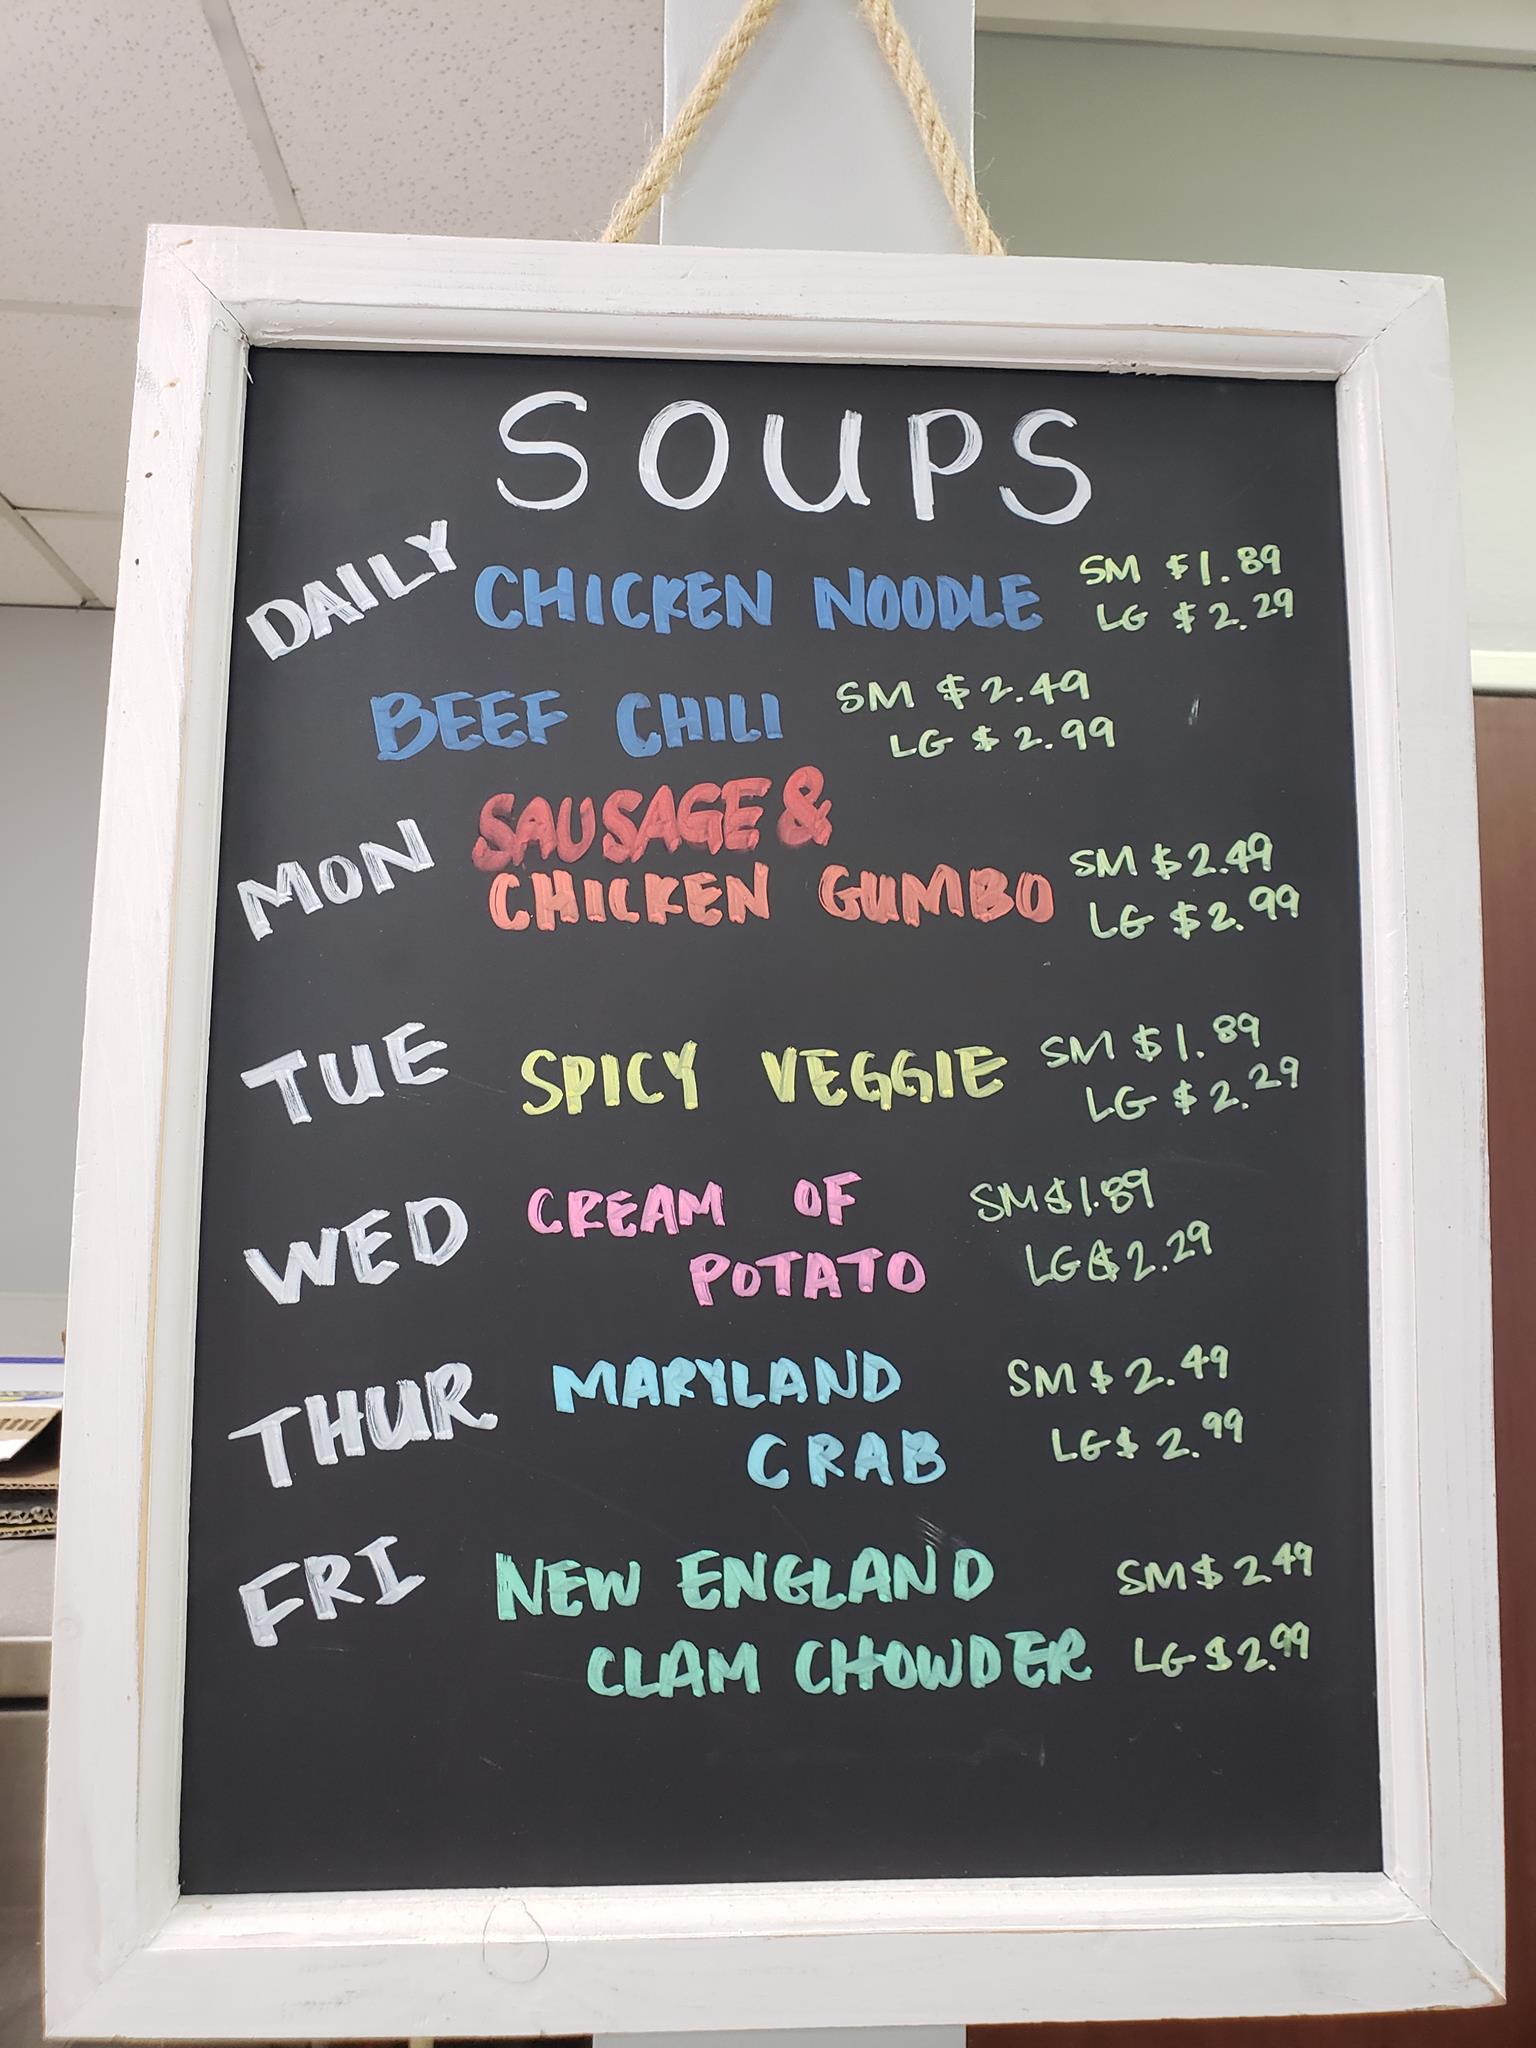 SOUPS
DAILY CHICKEN NOODLE SM $1.89
LG $2.29
BEEF CHILI SM $2.49
LG $2.99
SAUSAGE &
MON CHICKEN GUMBO SM $2.49
LG $2.99
TUE SPICY VEGGIE SM $1.89
LG $2.29
WED CREAM OF SM $1.89
POTATO LG $2.29
THUR MARYLAND SM $2.49
CRAB LG $2.99
FRI NEW ENGLAND SM $2.49
CLAM CHOWDER LG $2.99